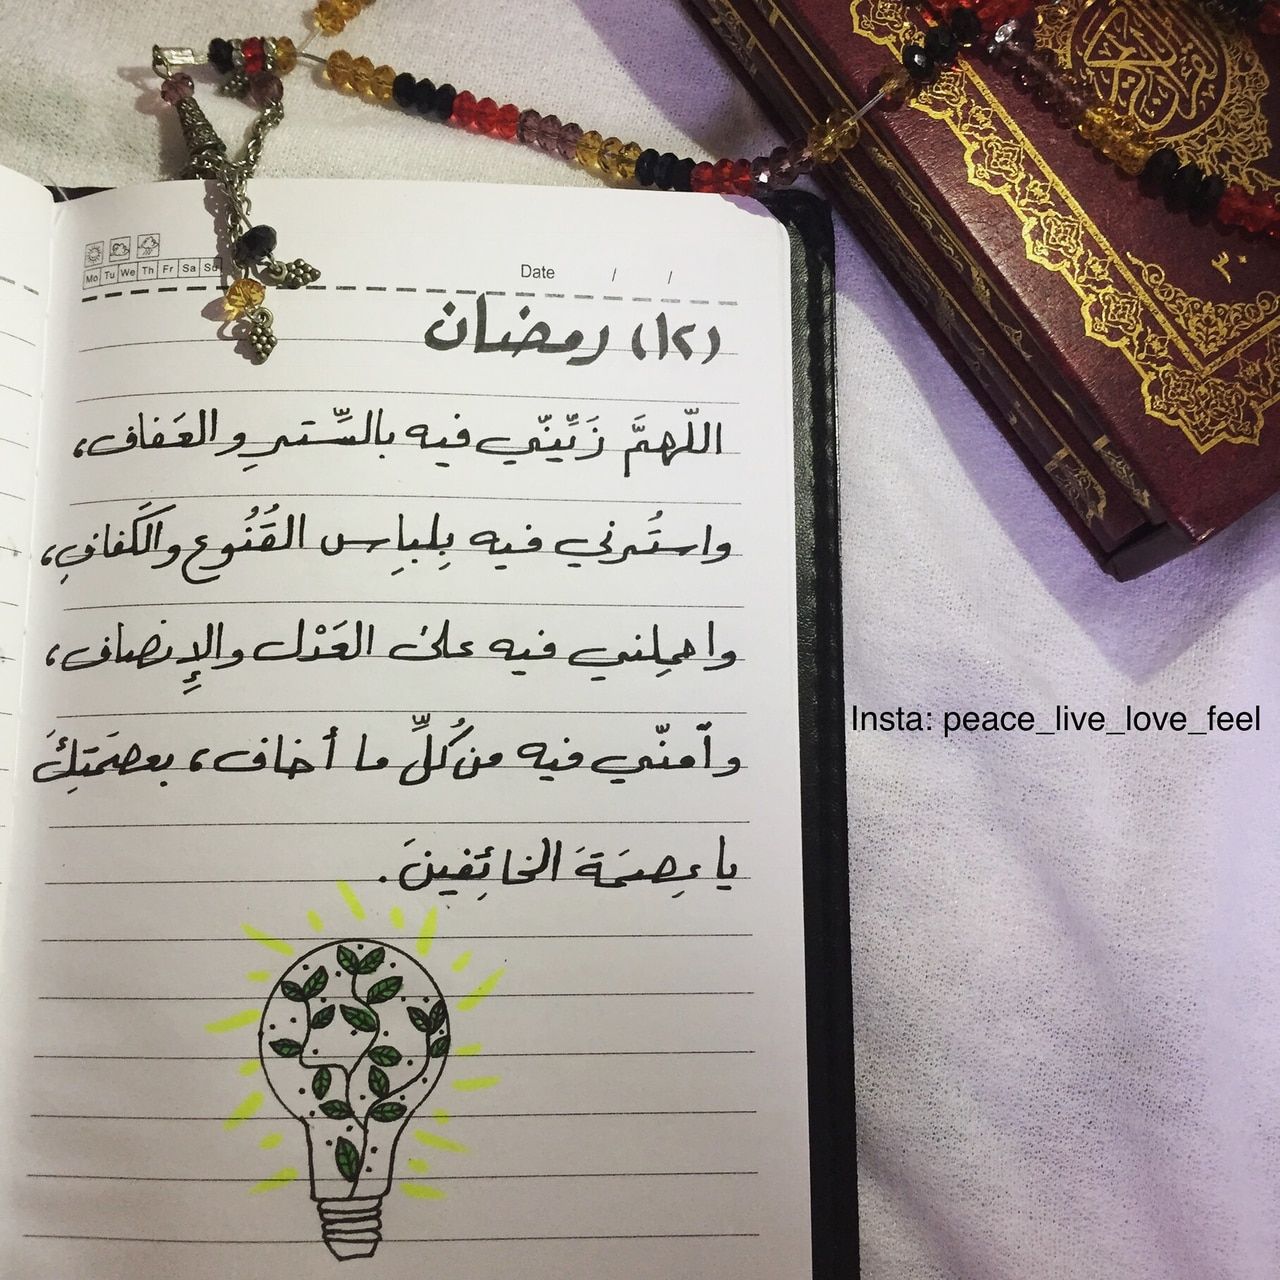 Mo Tu We Th Fr Sa Su
Date / /
(١٢) رمضان
اللّهمَّ زَيِّنّي فيه بالسِّترِ والعَفاف،
واستُرني فيه بِلباِس القُنُوع والكَفافِ،
واحمِلني فيه على العَدْل والإِنصاف،
وآمنّي فيه من كُلِّ ما أخاف، بعصمَتِكَ
يا عِصمَةَ الخائِفينَ.
Insta: peace_live_love_feel
القرآن الكريم
٣٠